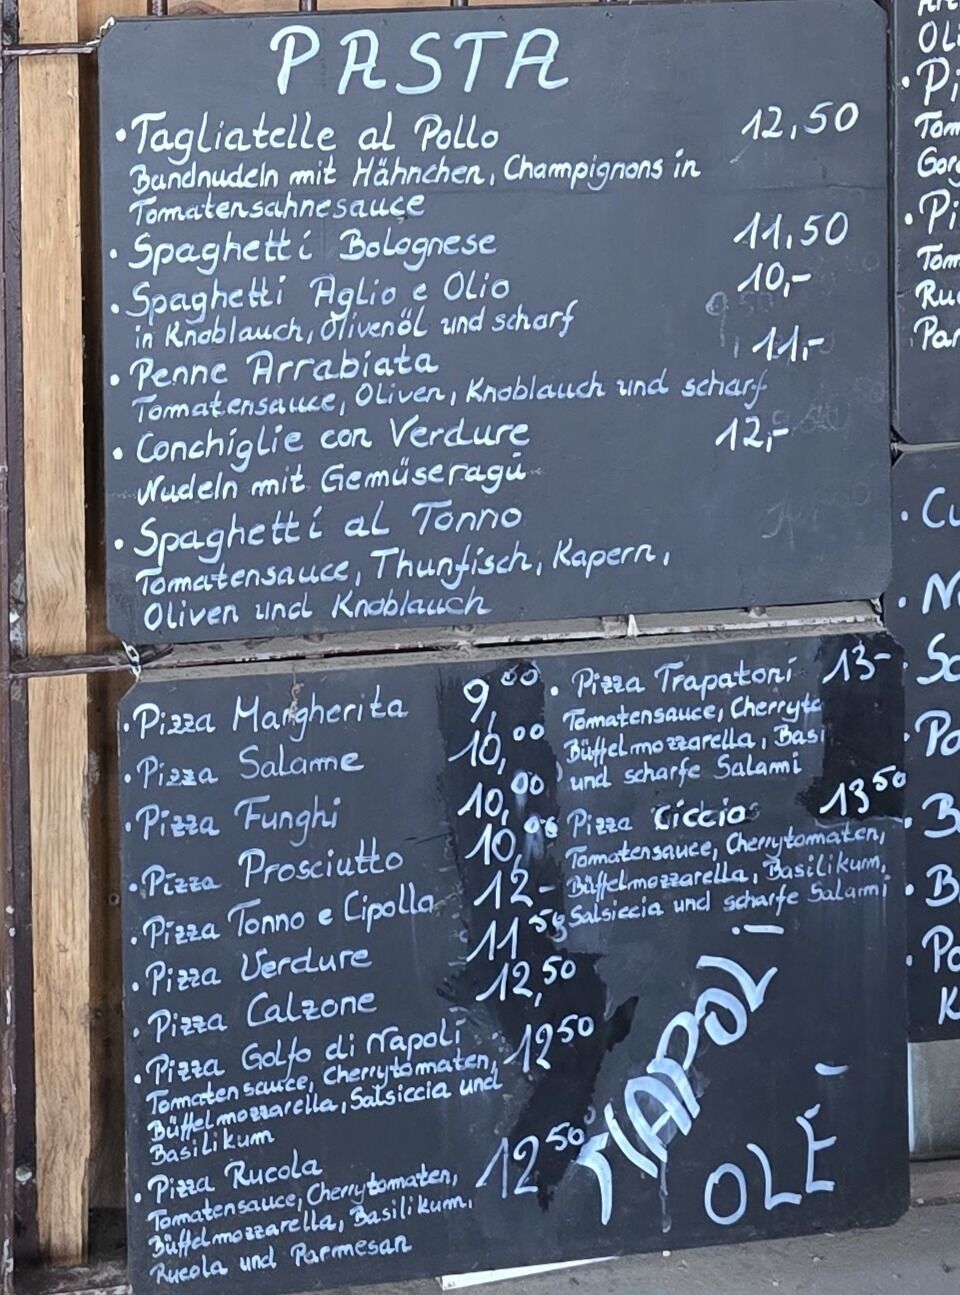 PASTA
• Tagliatelle al Pollo 12,50
Bandnudeln mit Hähnchen, Champignons in
Tomatensahnesauce
• Spaghetti Bolognese 11,50
• Spaghetti Aglio e Olio 10,-
in Knoblauch, Olivenöl und scharf
• Penne Arrabiata 11,-
Tomatensauce, Oliven, Knoblauch und scharf
• Conchiglie con Verdure 12,-
Nudeln mit Gemüseragú
• Spaghetti al Tonno
Tomatensauce, Thunfisch, Kapern,
Oliven und Knoblauch
• Pizza Margherita 9,00
• Pizza Salame 10,00
• Pizza Funghi 10,00
• Pizza Prosciutto 10,00
• Pizza Tonno e Cipolla 12-
• Pizza Verdure 11,50
• Pizza Calzone 12,50
• Pizza Golfo di Napoli 12,50
Tomatensauce, Cherrytomaten,
Büffelmozzarella, Salsiccia und
Basilikum
• Pizza Rucola 12,50
Tomatensauce, Cherrytomaten,
Büffelmozzarella, Basilikum,
Rucola und Parmesan
• Pizza Trapatoni 13-
Tomatensauce, Cherryto
Büffelmozzarella, Basi
und scharfe Salami
• Pizza Ciccio 13,50
Tomatensauce, Cherrytomaten,
Büffelmozzarella, Basilikum,
Salsiccia und scharfe Salami
NAPOLI
OLÉ
Oli
• Pi
Tom
Gorg
• Pi
Tom
Ruc
Par
• Cu
• N
So
• Po
• B
• B
• Po
K